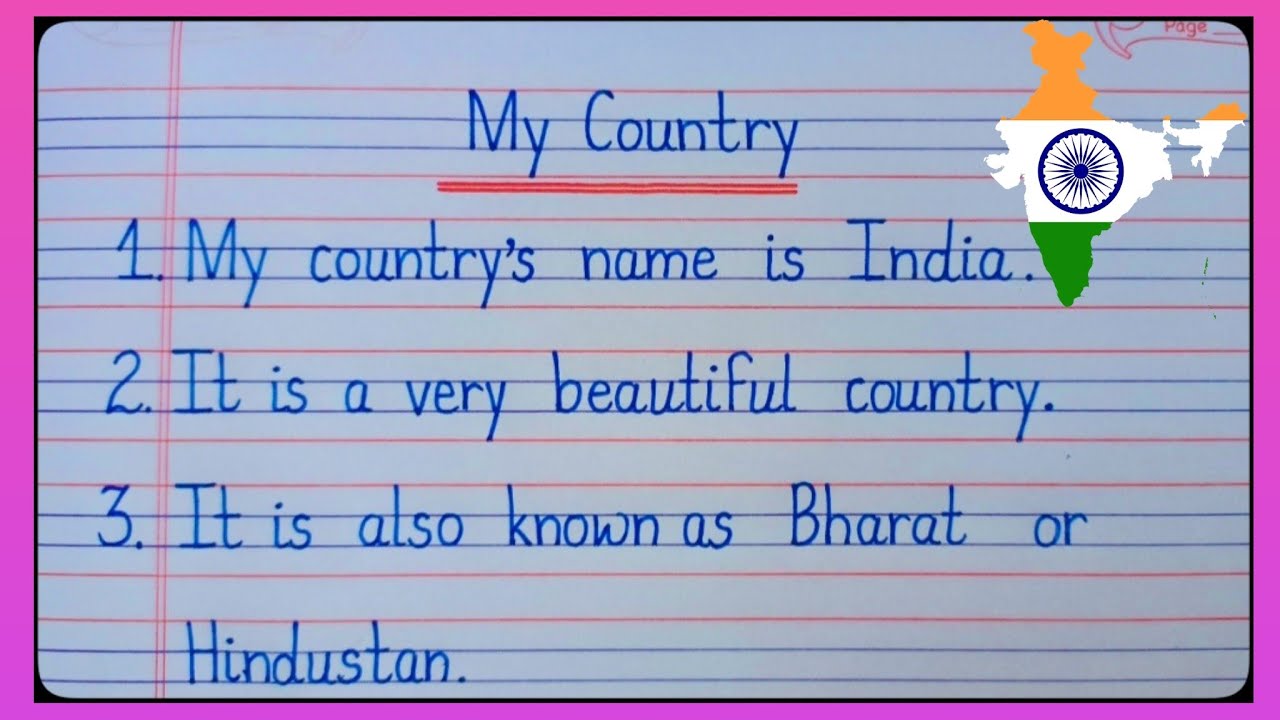 Page
My Country
1. My country's name is India.
2. It is a very beautiful country.
3. It is also known as Bharat or
Hindustan.